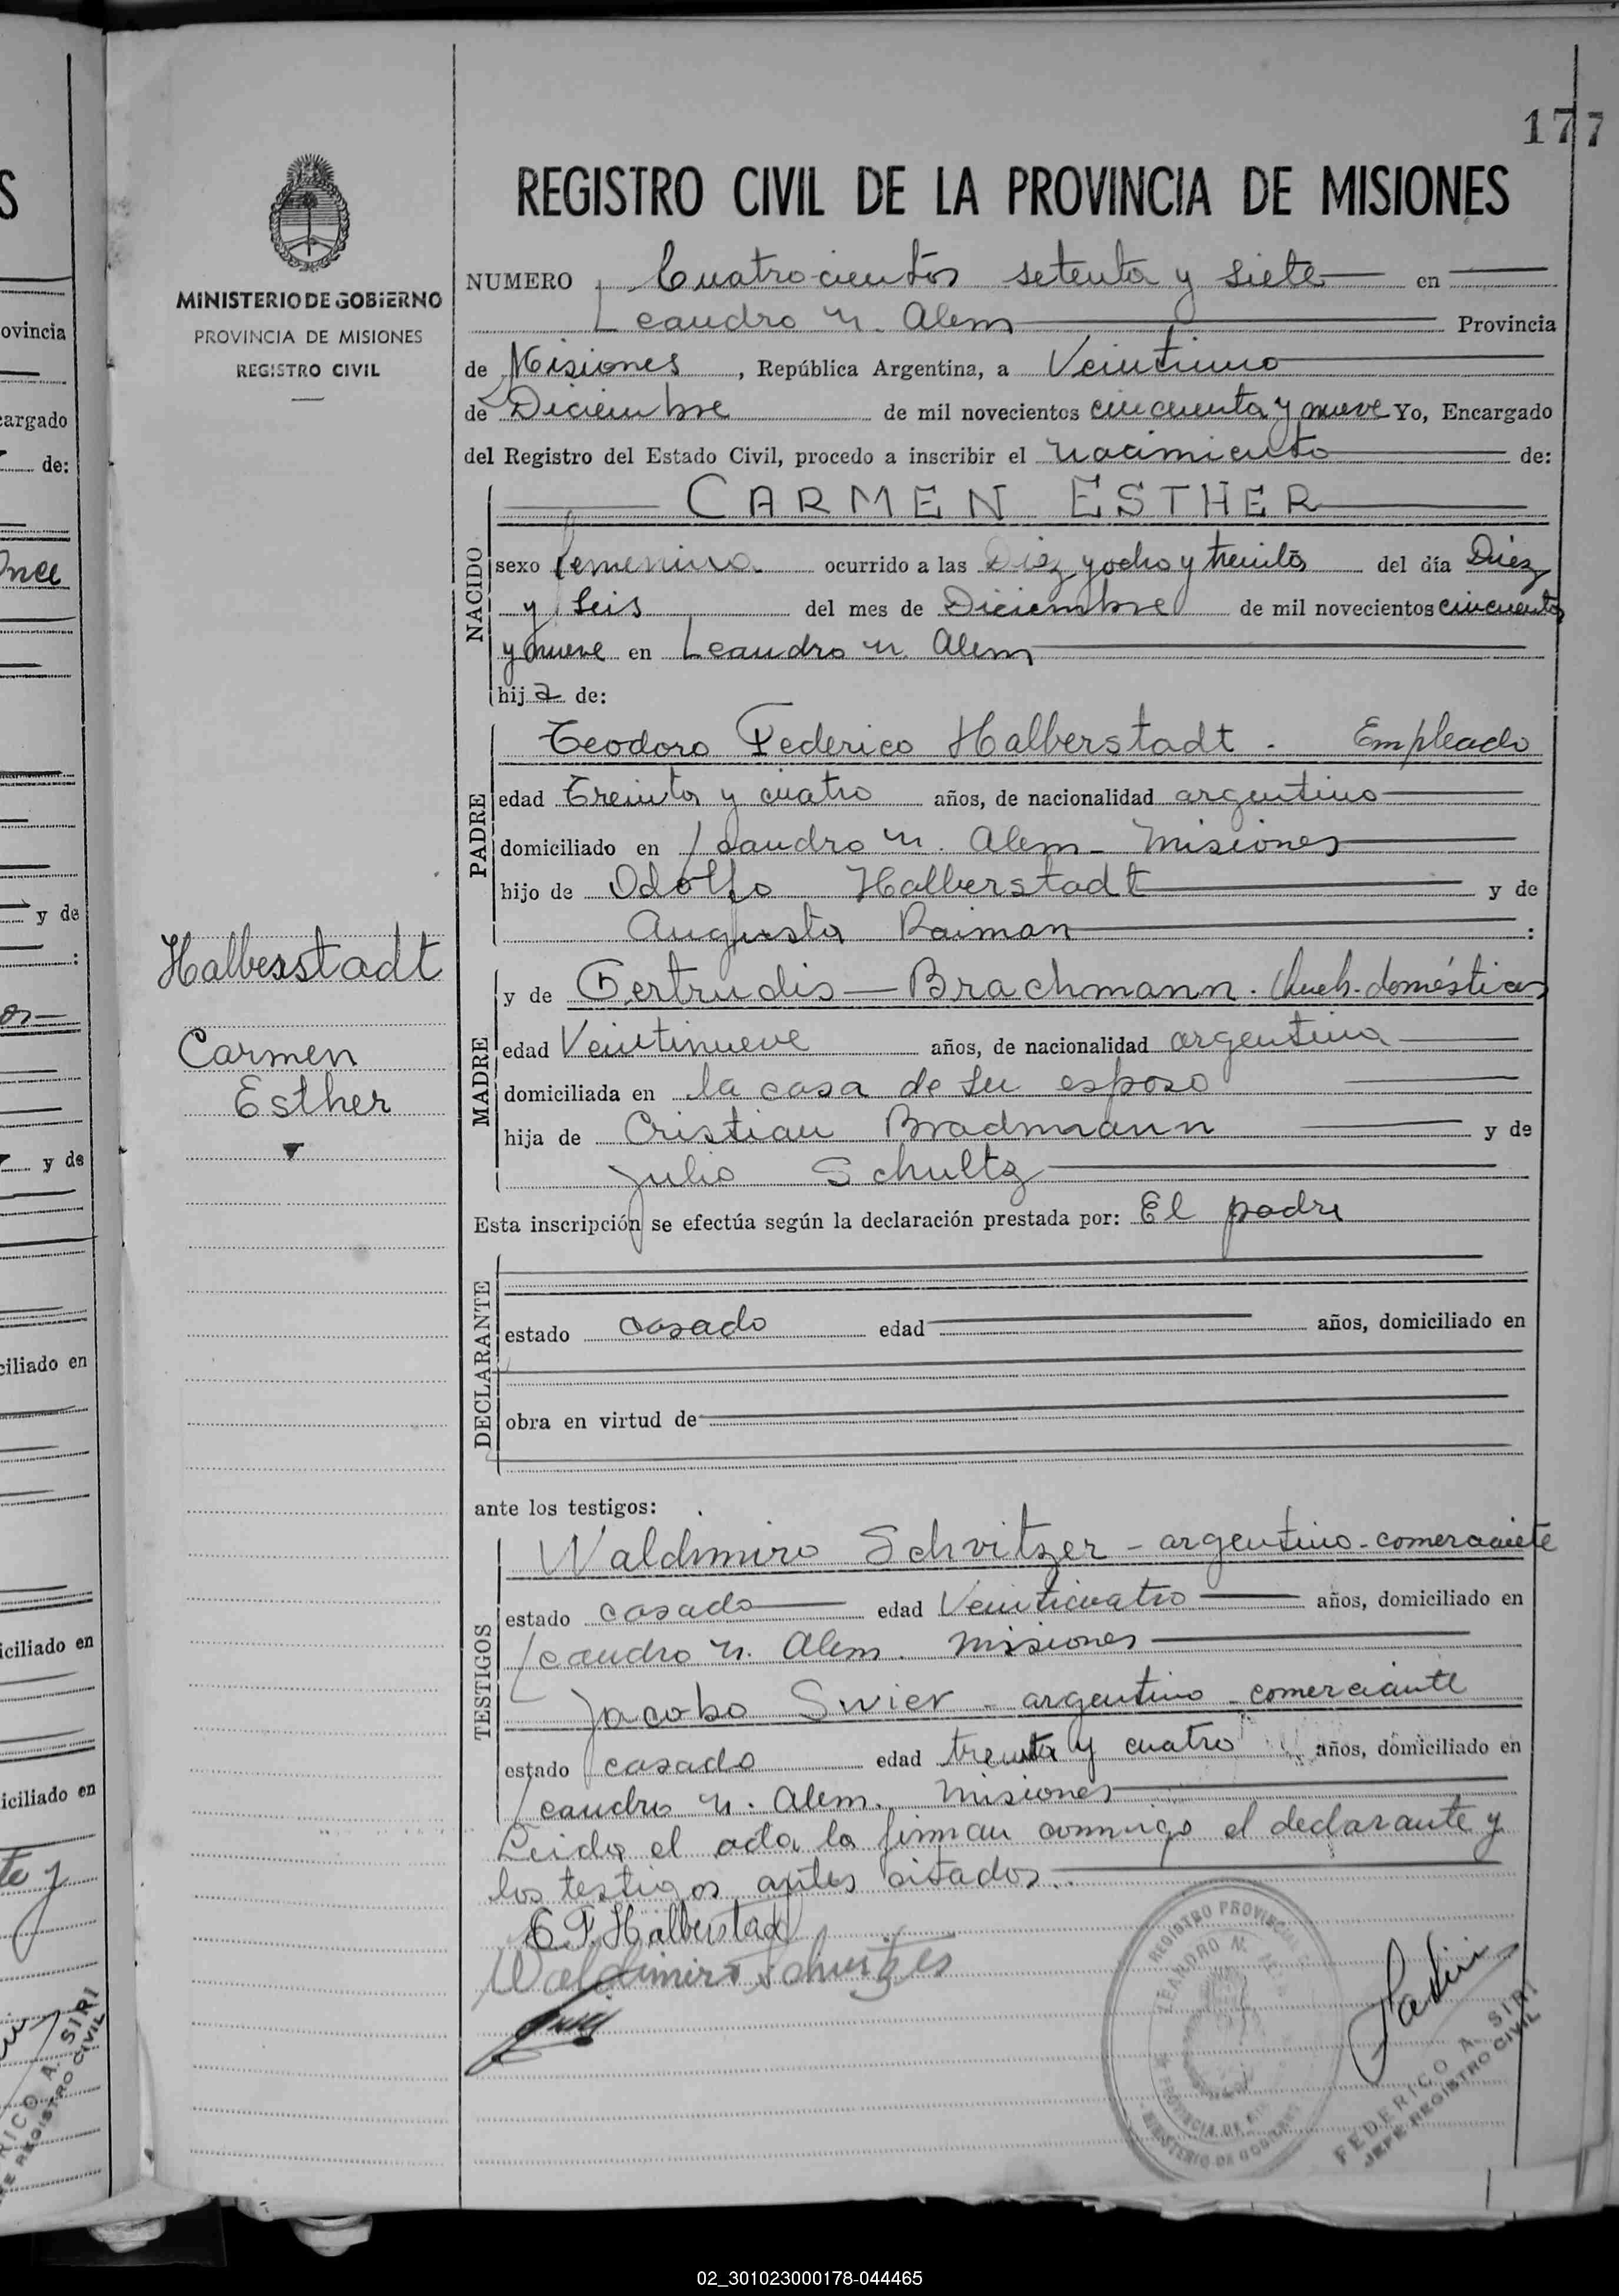 177
REGISTRO CIVIL DE LA PROVINCIA DE MISIONES
MINISTERIO DE GOBIERNO
PROVINCIA DE MISIONES
REGISTRO CIVIL
NUMERO Cuatrocientos setenta y siete en
Leandro N. Alem Provincia
de Misiones, República Argentina, a Veintiuno
de Diciembre de mil novecientos cincuenta y nueve Yo, Encargado
del Registro del Estado Civil, procedo a inscribir el nacimiento de:
NACIDO
CARMEN ESTHER
sexo femenino ocurrido a las Diez y ocho y treinta del día Diez
y Seis del mes de Diciembre de mil novecientos cincuenta
y nueve en Leandro N. Alem
hija de:
PADRE
Teodoro Federico Halberstadt - Empleado
edad Treinta y cuatro años, de nacionalidad argentino
domiciliado en Leandro N. Alem - Misiones
hijo de Odolfo Halberstadt y de
Augusta Raiman :
Halberstadt
Carmen
Esther
MADRE
y de Gertrudis Brachmann. Queh. domésticos
edad Veintinueve años, de nacionalidad argentina
domiciliada en la casa de su esposo
hija de Cristian Bradmann y de
Julia Schultz
Esta inscripción se efectúa según la declaración prestada por: El padre
DECLARANTE
estado casado edad años, domiciliado en
obra en virtud de
ante los testigos:
TESTIGOS
Waldimiro Schvitzer - argentino - comerciante
estado casado edad Veinticuatro años, domiciliado en
Leandro N. Alem. Misiones
Jacobo Swier - argentino - comerciante
estado casado edad treinta y cuatro años, domiciliado en
Leandro N. Alem. Misiones
Leida el acta la firman conmigo el declarante y
los testigos antes citados.
T. F. Halberstadt
Waldimiro
REGISTRO PROVINCIAL
LEANDRO N. ALEM
PROVINCIA DE
MINISTERIO DE GOBIERNO
FEDERICO A. SIRI
JEFE REGISTRO CIVIL
02_301023000178-044465